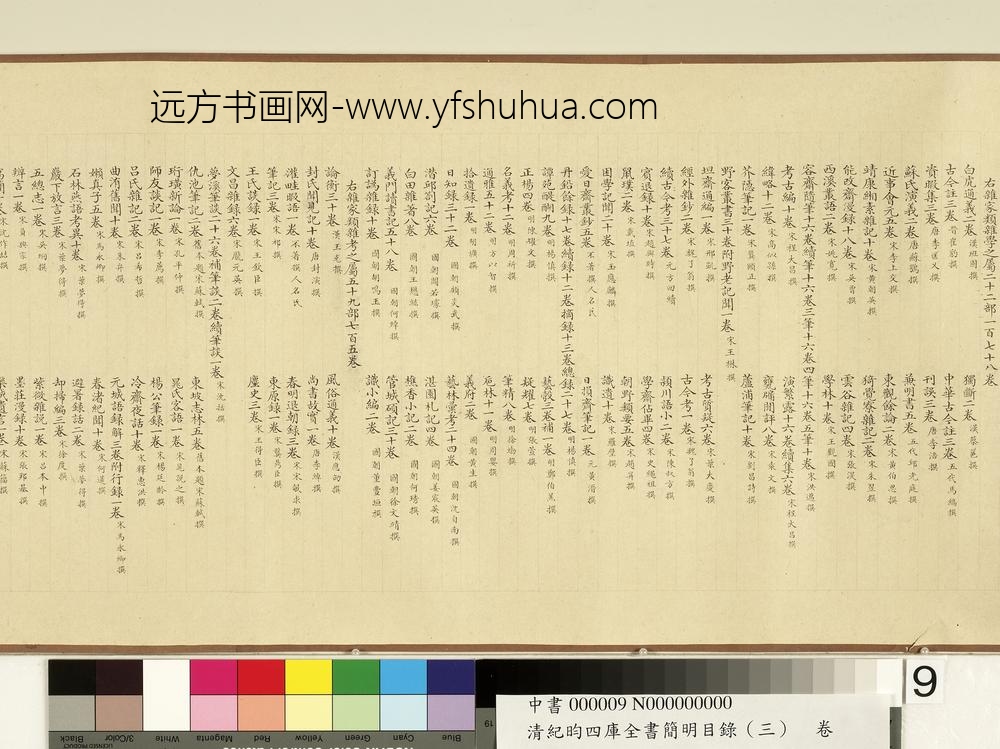 远方书画网-www.yfshuhua.com
右雜家類雜學之屬二十二部一百七十八卷
白虎通義二卷 漢班固撰
獨斷二卷 漢蔡邕撰
古今註三卷 晉崔豹撰
中華古今註三卷 五代馬縞撰
資暇集三卷 唐李匡乂撰
刊誤三卷 唐李涪撰
蘇氏演義二卷 唐蘇鶚撰
兼明書五卷 五代邱光庭撰
近事會元五卷 宋李上交撰
東觀餘論二卷 宋黃伯思撰
靖康緗素雜記十卷 宋黃朝英撰
猗覺寮雜記二卷 宋朱翌撰
能改齋漫録十八卷 宋吳曾撰
雲谷雜記四卷 宋張淏撰
西溪叢語二卷 宋姚寬撰
學林十卷 宋王觀國撰
容齋隨筆十六卷續筆十六卷三筆十六卷四筆十六卷五筆十卷 宋洪邁撰
考古編十卷 宋程大昌撰
演繁露十六卷續集六卷 宋程大昌撰
緯略十二卷 宋高似孫撰
甕牖閒評八卷 宋袁文撰
芥隱筆記一卷 宋龔頤正撰
蘆浦筆記十卷 宋劉昌詩撰
野客叢書三十卷附野老記聞一卷 宋王楙撰
坦齋通編一卷 宋邢凱撰
考古質疑六卷 宋葉大慶撰
經外雜鈔二卷 宋魏了翁撰
古今考一卷 宋魏了翁撰
續古今考三十七卷 元方回續
潁川語小二卷 宋陳叔方撰
賓退録十卷 宋趙與時撰
學齋佔畢四卷 宋史繩祖撰
鼠璞二卷 宋戴埴撰
朝野類要五卷 宋趙升撰
困學記聞二十卷 宋王應麟撰
識遺十卷 宋羅璧撰
愛日齋叢鈔五卷 不著撰人名氏
日損齋筆記一卷 元黃溍撰
丹鉛餘録十七卷續録十二卷摘録十三卷總録二十七卷 明楊慎撰
譚苑醍醐九卷 明楊慎撰
藝彀三卷補一卷 明鄧伯羔撰
正楊四卷 明陳耀文撰
疑耀七卷 明張萱撰
名義考十二卷 明周祈撰
筆精八卷 明徐𤊹撰
通雅五十二卷 明方以智撰
巵林十卷 明周嬰撰
拾遺録一卷 明胡爌撰
義府二卷 國朝黃生撰
日知録三十二卷 國朝顧炎武撰
藝林彙考二十四卷 國朝沈自南撰
潛邱劄記六卷 國朝閻若璩撰
湛園札記四卷 國朝姜宸英撰
白田雜著八卷 國朝王懋竑撰
樵香小記二卷 國朝何琇撰
義門讀書記五十八卷 國朝何焯撰
管城碩記三十卷 國朝徐文靖撰
訂譌雜録十卷 國朝胡鳴玉撰
識小編二卷 國朝董豐垣撰
右雜家類雜考之屬五十九部七百五卷
論衡三十卷 漢王充撰
風俗通義十卷 漢應劭撰
封氏聞見記十卷 唐封演撰
尚書故實一卷 唐李綽撰
灌畦暇語一卷 不著撰人名氏
春明退朝録三卷 宋宋敏求撰
筆記三卷 宋宋祁撰
東原録一卷 宋龔鼎臣撰
王氏談録一卷 宋王欽臣撰
麈史三卷 宋王得臣撰
文昌雜録六卷 宋龐元英撰
夢溪筆談二十六卷補筆談二卷續筆談一卷 宋沈括撰
仇池筆記二卷 舊本題宋蘇軾撰
東坡志林五卷 舊本題宋蘇軾撰
珩璜新論一卷 宋孔平仲撰
晁氏客語一卷 宋晁說之撰
師友談記一卷 宋李廌撰
楊公筆録一卷 宋楊延齡撰
呂氏雜記二卷 宋呂希哲撰
冷齋夜話十卷 宋釋惠洪撰
曲洧舊聞十卷 宋朱弁撰
元城語録解三卷附行録一卷 宋馬永卿撰
嬾真子五卷 宋馬永卿撰
春渚紀聞十卷 宋何薳撰
石林燕語考異十卷 宋葉夢得撰
避暑録話二卷 宋葉夢得撰
巖下放言三卷 宋葉夢得撰
却掃編三卷 宋徐度撰
五總志一卷 宋吳坰撰
紫微雜說一卷 宋呂本中撰
辨言一卷 宋員興宗撰
墨莊漫録十卷 宋張邦基撰
中書 000009 N000000000
清紀昀四庫全書簡明目錄（三） 卷
9
19
Blue
Cyan
Green
Yellow
Red
Magenta
White
3/Color
Black